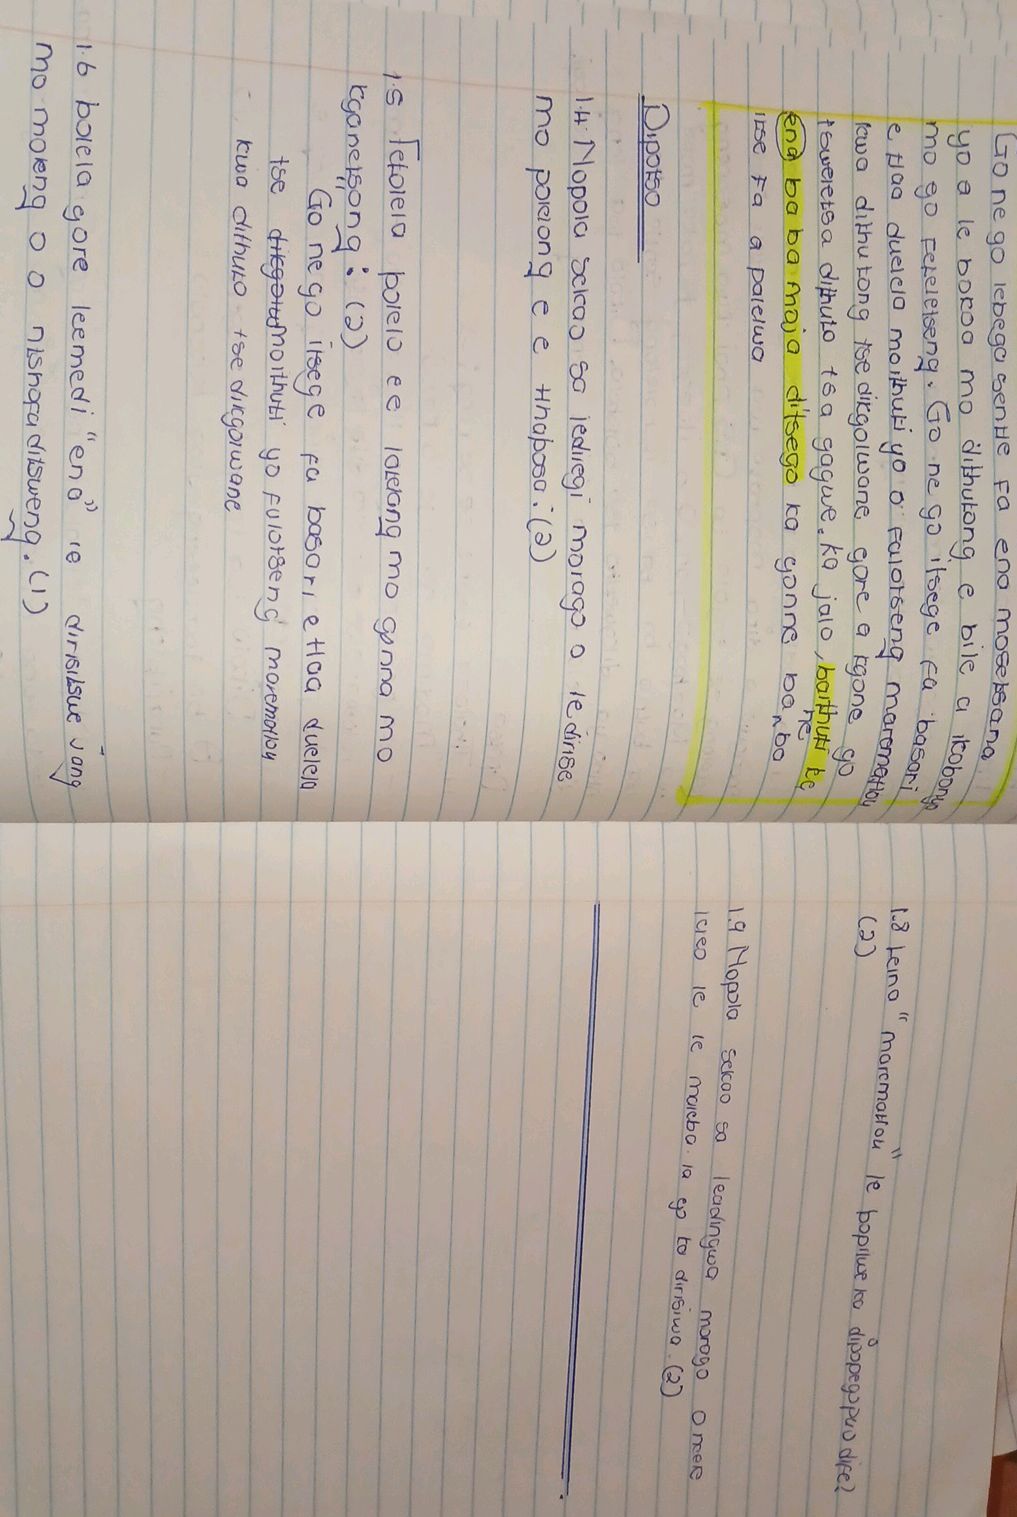 Go ne go lebega sentle fa ena mosetsana
yo a le bokoa mo dithutong e bile a ikobonya
mo go feteletseng. Go ne go itsege fa basari
e tlaa duelela moithuti yo o falotseng maremotlou
kwa dithutong tse dikgolwane gore a kgone go
tswelelsa dithuto tsa gagwe. ka jalo, baithuti ke
ena ba ba maja ditsego ka gonne ba ne ba
itse fa a paletwa
Dipotso
1.4 Nopola sekao sa lediregi morago o le dirise
mo polelong e e tlhabosa: (2)
1.5 Tekolela polelo ee latelang mo gonna mo
kganetsong: (2)
Go ne go itsege fa basari e tlaa duelela
tse moithuti yo fulotseng maremotlou
kwa dithuto tse dikgolwane
1.6 bolela gore leemedi "ena" le dirisitswe jang
mo moleng o o ntshofaditsweng. (1)
1.8 Leina "maremotlou" le bopilwe ka dipopegopuo dife?
(2)
1.9 Nopola sekao sa leadingwa morago o neele
lereo le le maleba la go ka dirisiwa. (2)